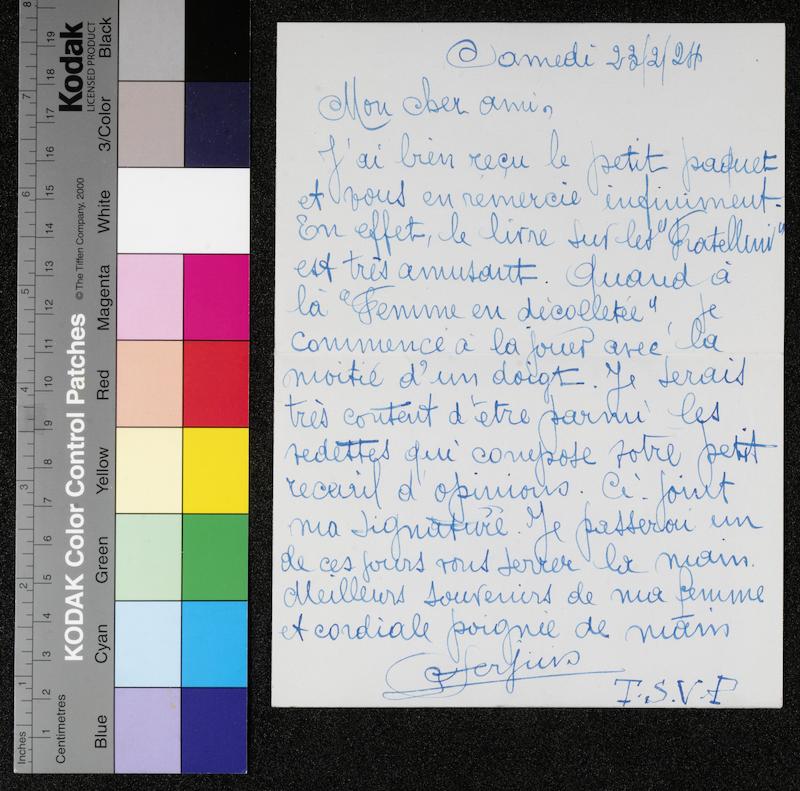 Samedi 23/2/24
Mon cher ami,
J'ai bien reçu le petit paquet
et vous en remercie infiniment.
En effet, le livre sur les "Fratellini"
est très amusant. Quand à
la "Femme en décolletée" je
commence à la jouer avec la
moitié d'un doigt. Je serais
très content d'être parmi les
vedettes qui compose votre petit
recueil d'opinions. Ci-joint
ma signature. Je passerai un
de ces jours vous serrer la main.
Meilleurs souvenirs de ma femme
et cordiale poignée de main
Serjius
T.S.V.P
Kodak
LICENSED PRODUCT
KODAK Color Control Patches
© The Tiffen Company, 2000
Black
3/Color
White
Magenta
Red
Yellow
Green
Cyan
Blue
Inches
1
2
3
4
5
6
7
8
Centimetres
1
2
3
4
5
6
7
8
9
10
11
12
13
14
15
16
17
18
19